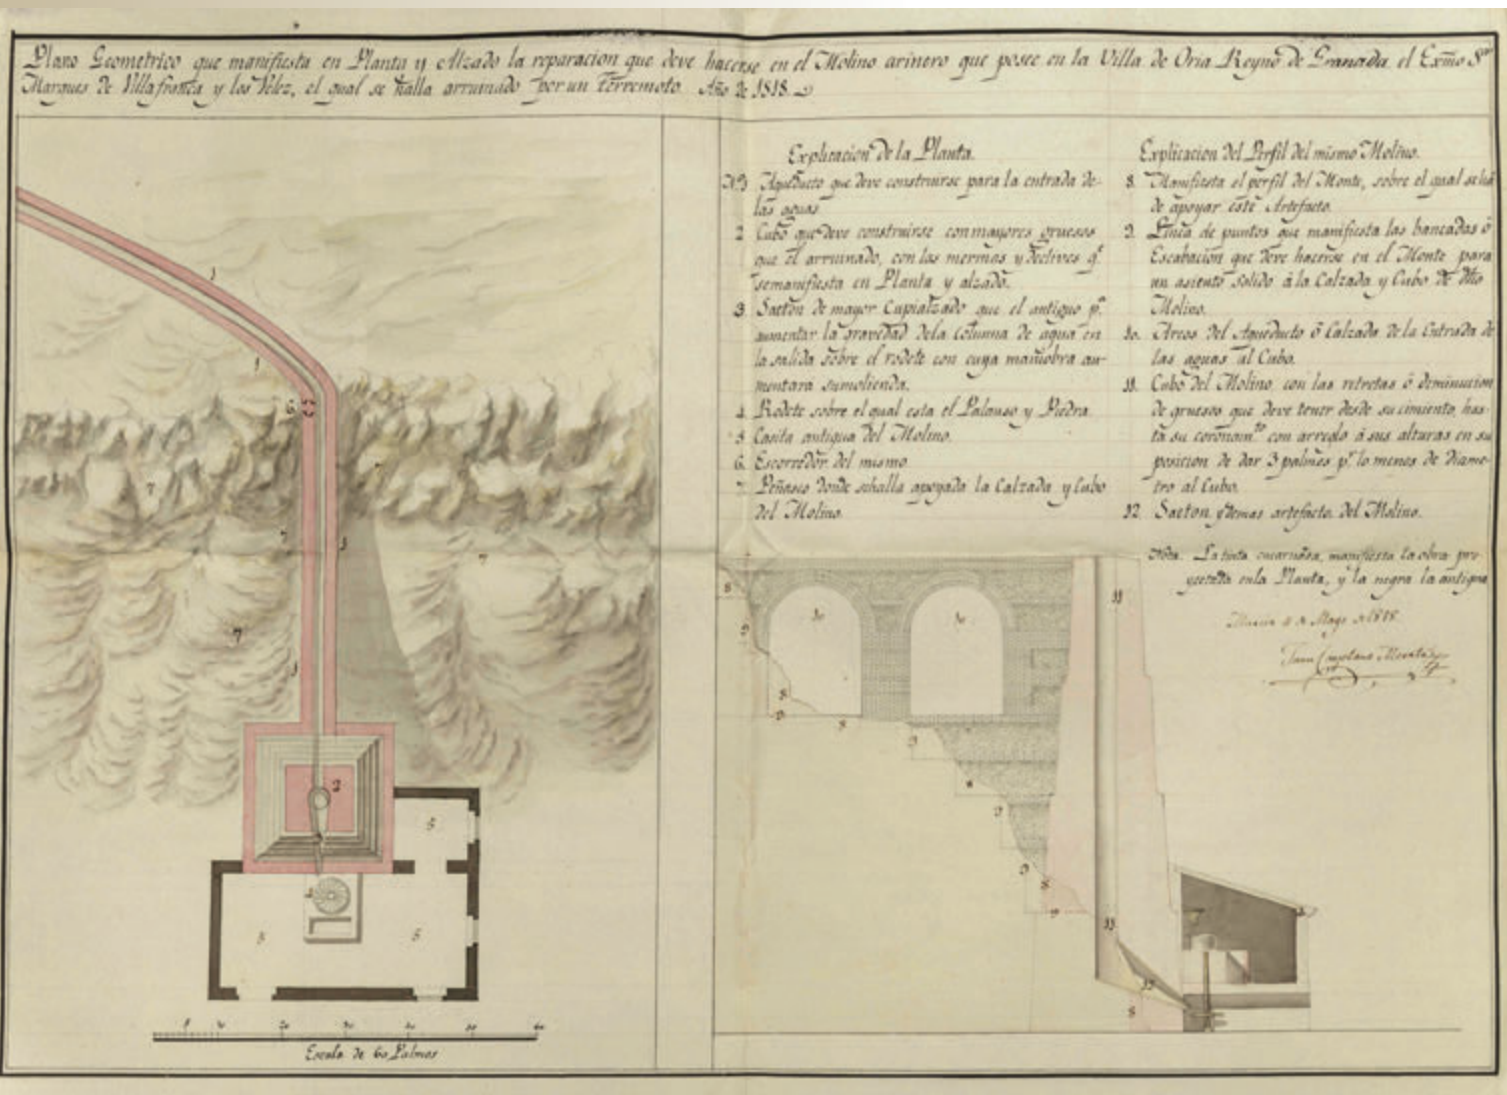 Plano Geometrico que manifiesta en Planta y Alzado la reparacion que deve hacerse en el Molino arinero que posee en la Villa de Oria Reyno de Granada el Exmo Sor
Marques de Villafranca y los Velez, el qual se halla arruinado por un terremoto. Año de 1818.
Explicacion de la Planta.
Nº 1 Aqueducto que deve construirse para la entrada de
las aguas
2 Cubo que deve construirse con mayores gruesos
que el arruinado, con las mermas y declives q.e
semanifiesta en Planta y alzado.
3 Saeton de mayor Capialzado que el antiguo p.a
aumentar la gravedad dela columna de agua en
la salida sobre el rodete con cuya maniobra au-
mentará sumolienda.
4 Rodete sobre el qual esta el Palauso y Piedra
5 Casita antigua del Molino.
6 Escorredor del mismo
7 Peñasco donde sehalla apoyada la Calzada y Cubo
del Molino.
Explicacion del Perfil del mismo Molino.
8. Manifiesta el perfil del Monte, sobre el qual seha
de apoyar este Artefacto.
9. Linea de puntos que manifiesta las bancadas ó
Escabacion que deve hacerse en el Monte para
un asiento solido á la Calzada y Cubo de dho
Molino.
10. Arcos del Aqueducto ó Calzada de la Entrada de
las aguas al Cubo.
11. Cubo del Molino con las retretas ó diminucion
de gruesos que deve tener desde su cimiento, has-
ta su coronam.to con arreglo á sus alturas en su
posicion de dar 3 palmos p.r lo menos de diame-
tro al Cubo.
12. Saeton y demas artefacto del Molino.
Nota. La tinta encarnada, manifiesta la obra pro-
yectada enla Planta, y la negra la antigua
Mayo 1818
Juan Cayetano
Escala de 60 Palmos